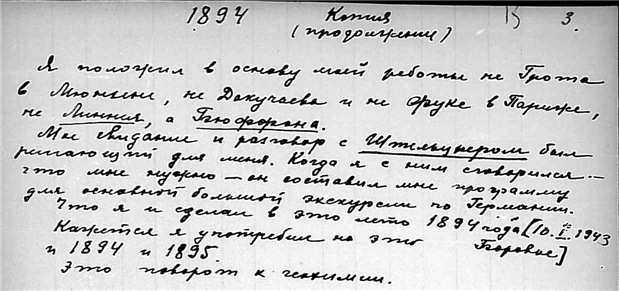 1894 Копия 3.
(продолжение)
Я положил в основу моей работы не Грота
в Мюнхене, не Докучаева и не Фуке в Париже,
не Линнея, а Бюффона.
Мое свидание и разговор с Штельцнером был
решающий для меня. Когда я с ним сговорился –
что мне нужно – он составил мне программу
для основной большой экскурсии по Германии.
Что я и сделал в это лето 1894 года [10.II.1943
Боровое]
Кажется я употребил на это
и 1894 и 1895.
Это поворот к геохимии.